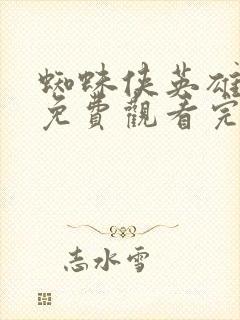 蜘蛛侠英雄
免費觀看完
志水雪